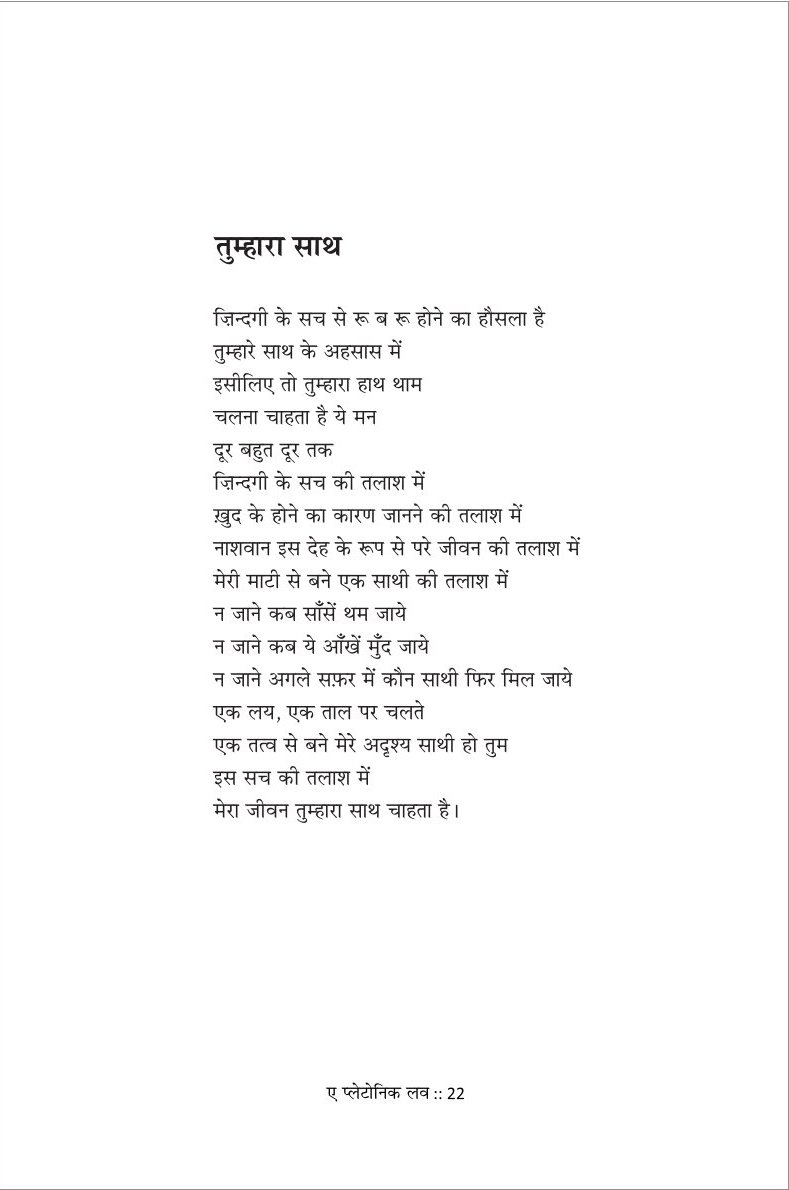 तुम्हारा साथ
ज़िन्दगी के सच से रू ब रू होने का हौसला है
तुम्हारे साथ के अहसास में
इसीलिए तो तुम्हारा हाथ थाम
चलना चाहता है ये मन
दूर बहुत दूर तक
ज़िन्दगी के सच की तलाश में
ख़ुद के होने का कारण जानने की तलाश में
नाशवान इस देह के रूप से परे जीवन की तलाश में
मेरी माटी से बने एक साथी की तलाश में
न जाने कब साँसें थम जाये
न जाने कब ये आँखें मुँद जाये
न जाने अगले सफ़र में कौन साथी फिर मिल जाये
एक लय, एक ताल पर चलते
एक तत्व से बने मेरे अदृश्य साथी हो तुम
इस सच की तलाश में
मेरा जीवन तुम्हारा साथ चाहता है।
ए प्लेटोनिक लव :: 22